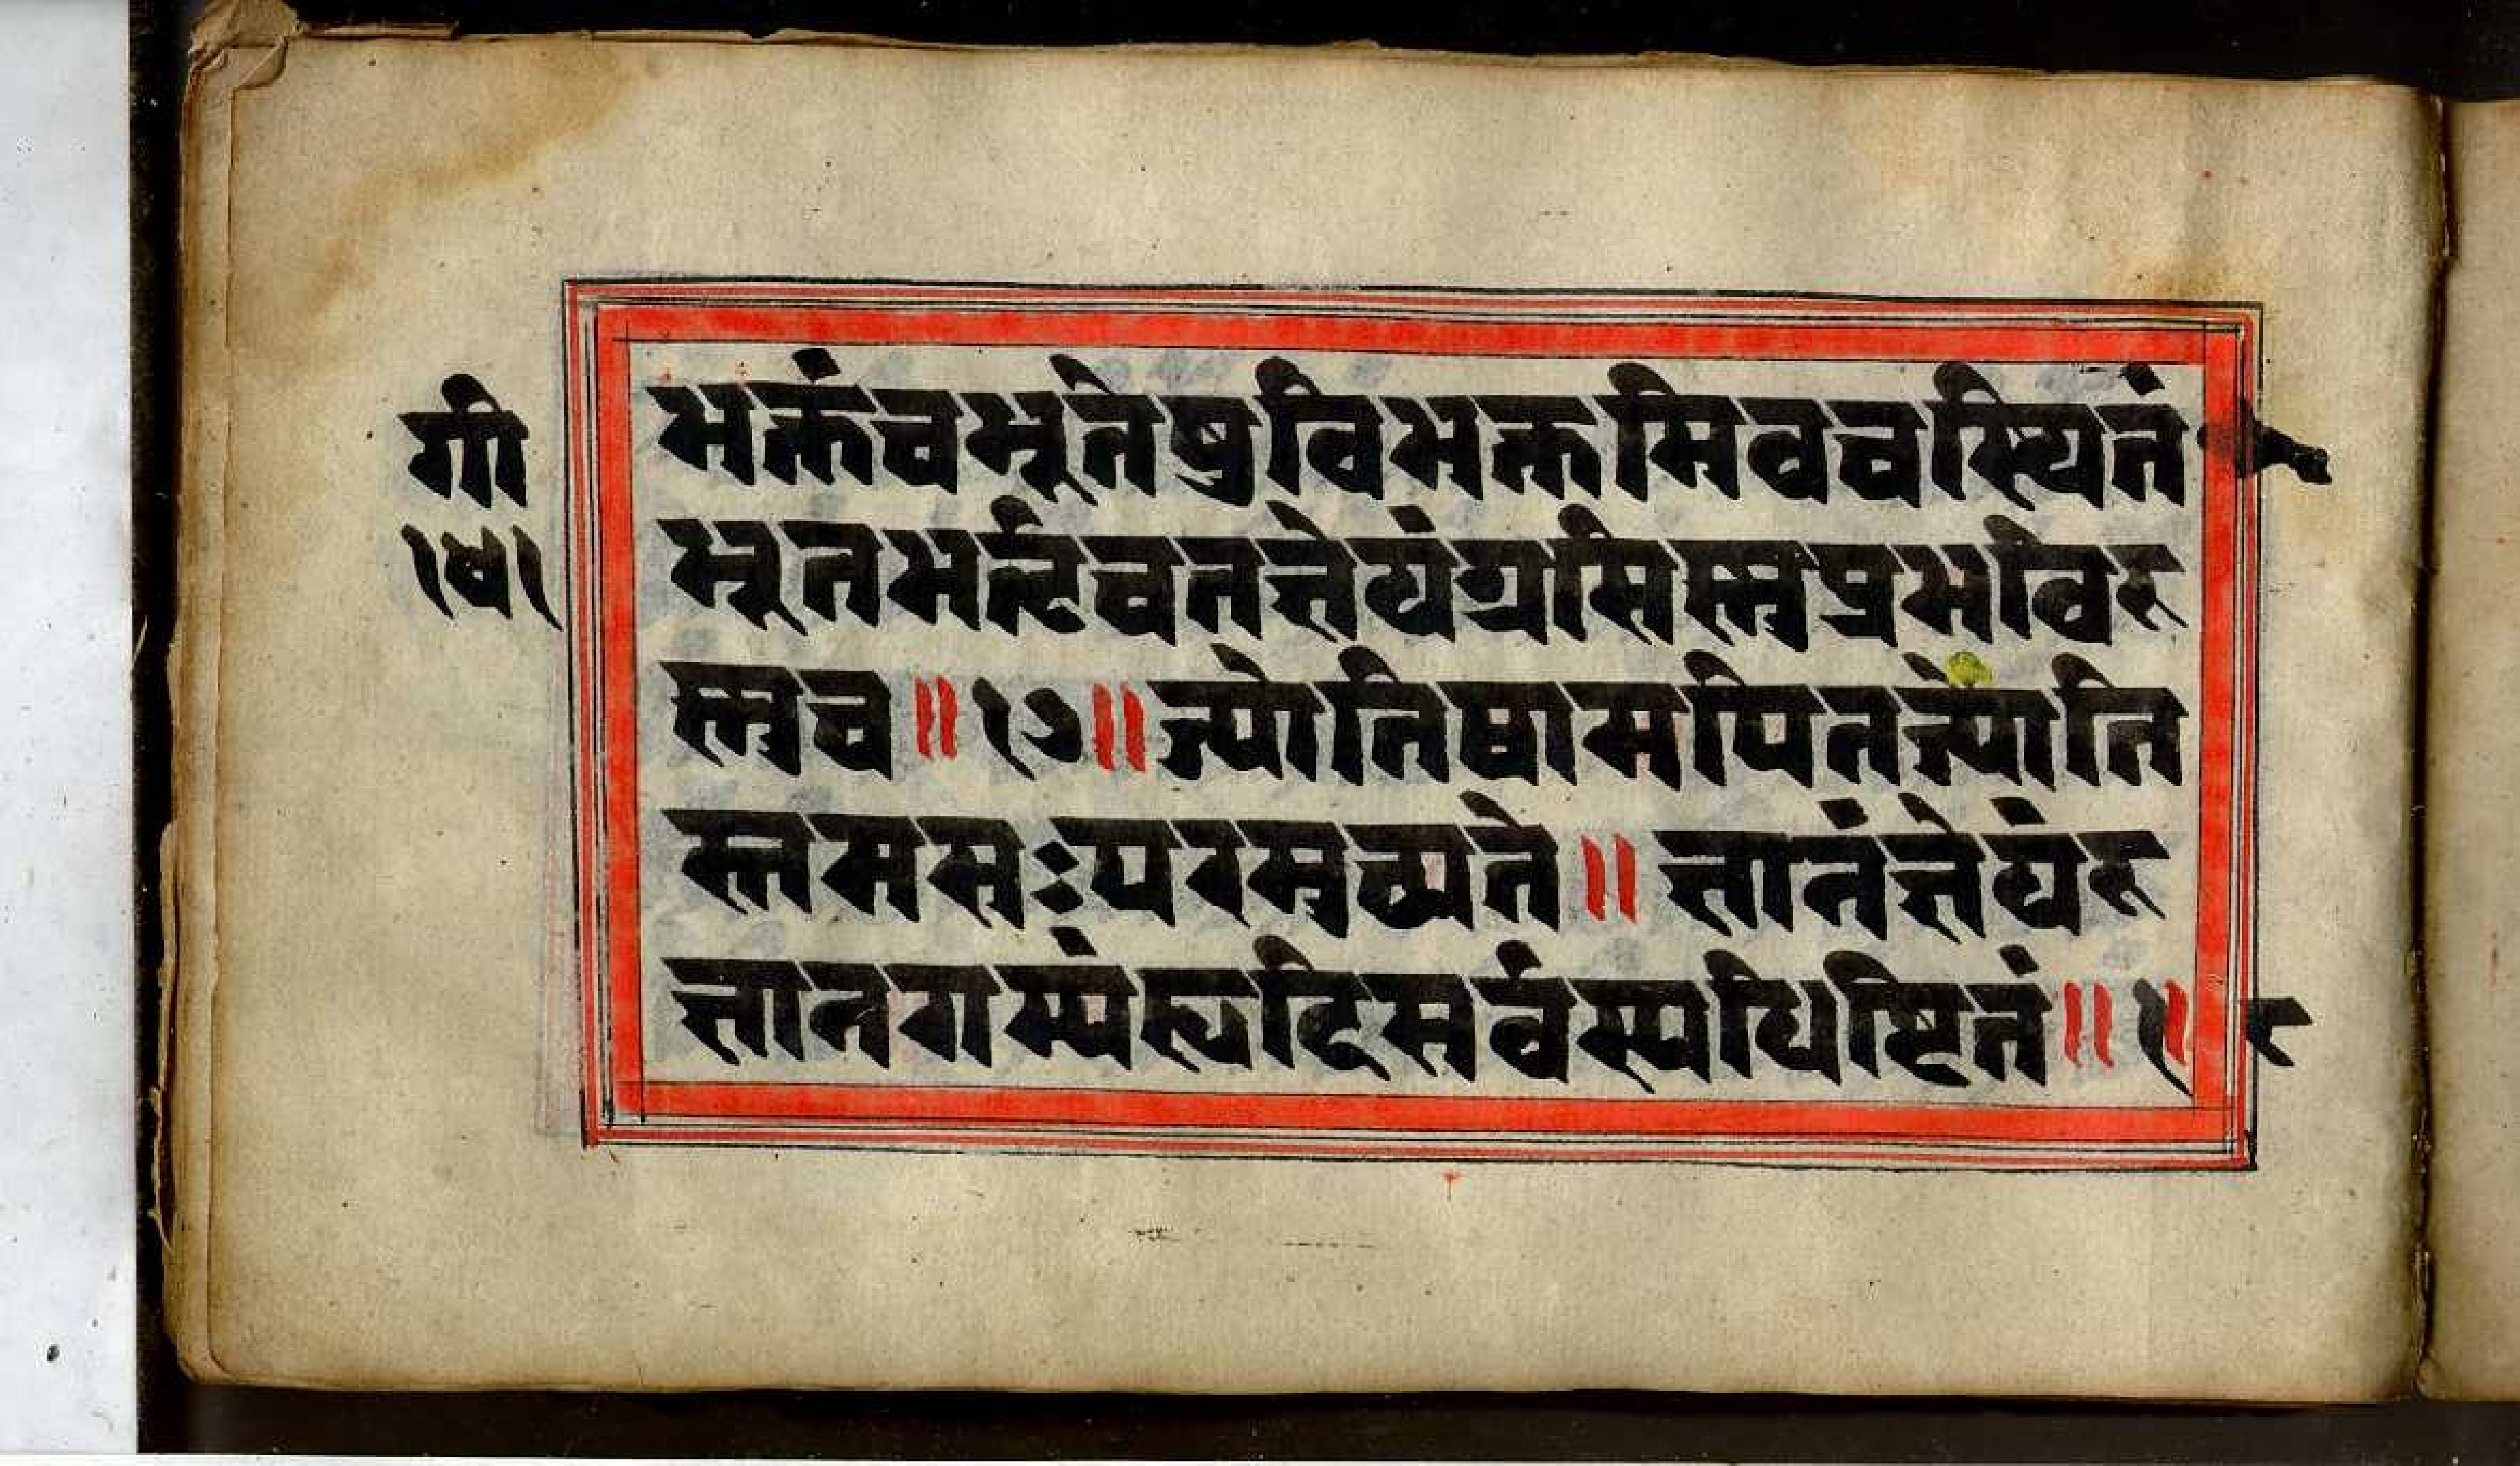 गी
।४।
भक्तंचभूतेषुविभक्तमिवचस्थितं
भूतभर्तृचतज्ञेयंग्रसिस्नुप्रभविरु
स्नुच॥१७॥ज्योतिषामपितज्योति
स्तमसःपरमुच्यते॥ज्ञानंज्ञेयंरु
ज्ञानगम्यंहृदिसर्वस्यधिष्टितं॥१८